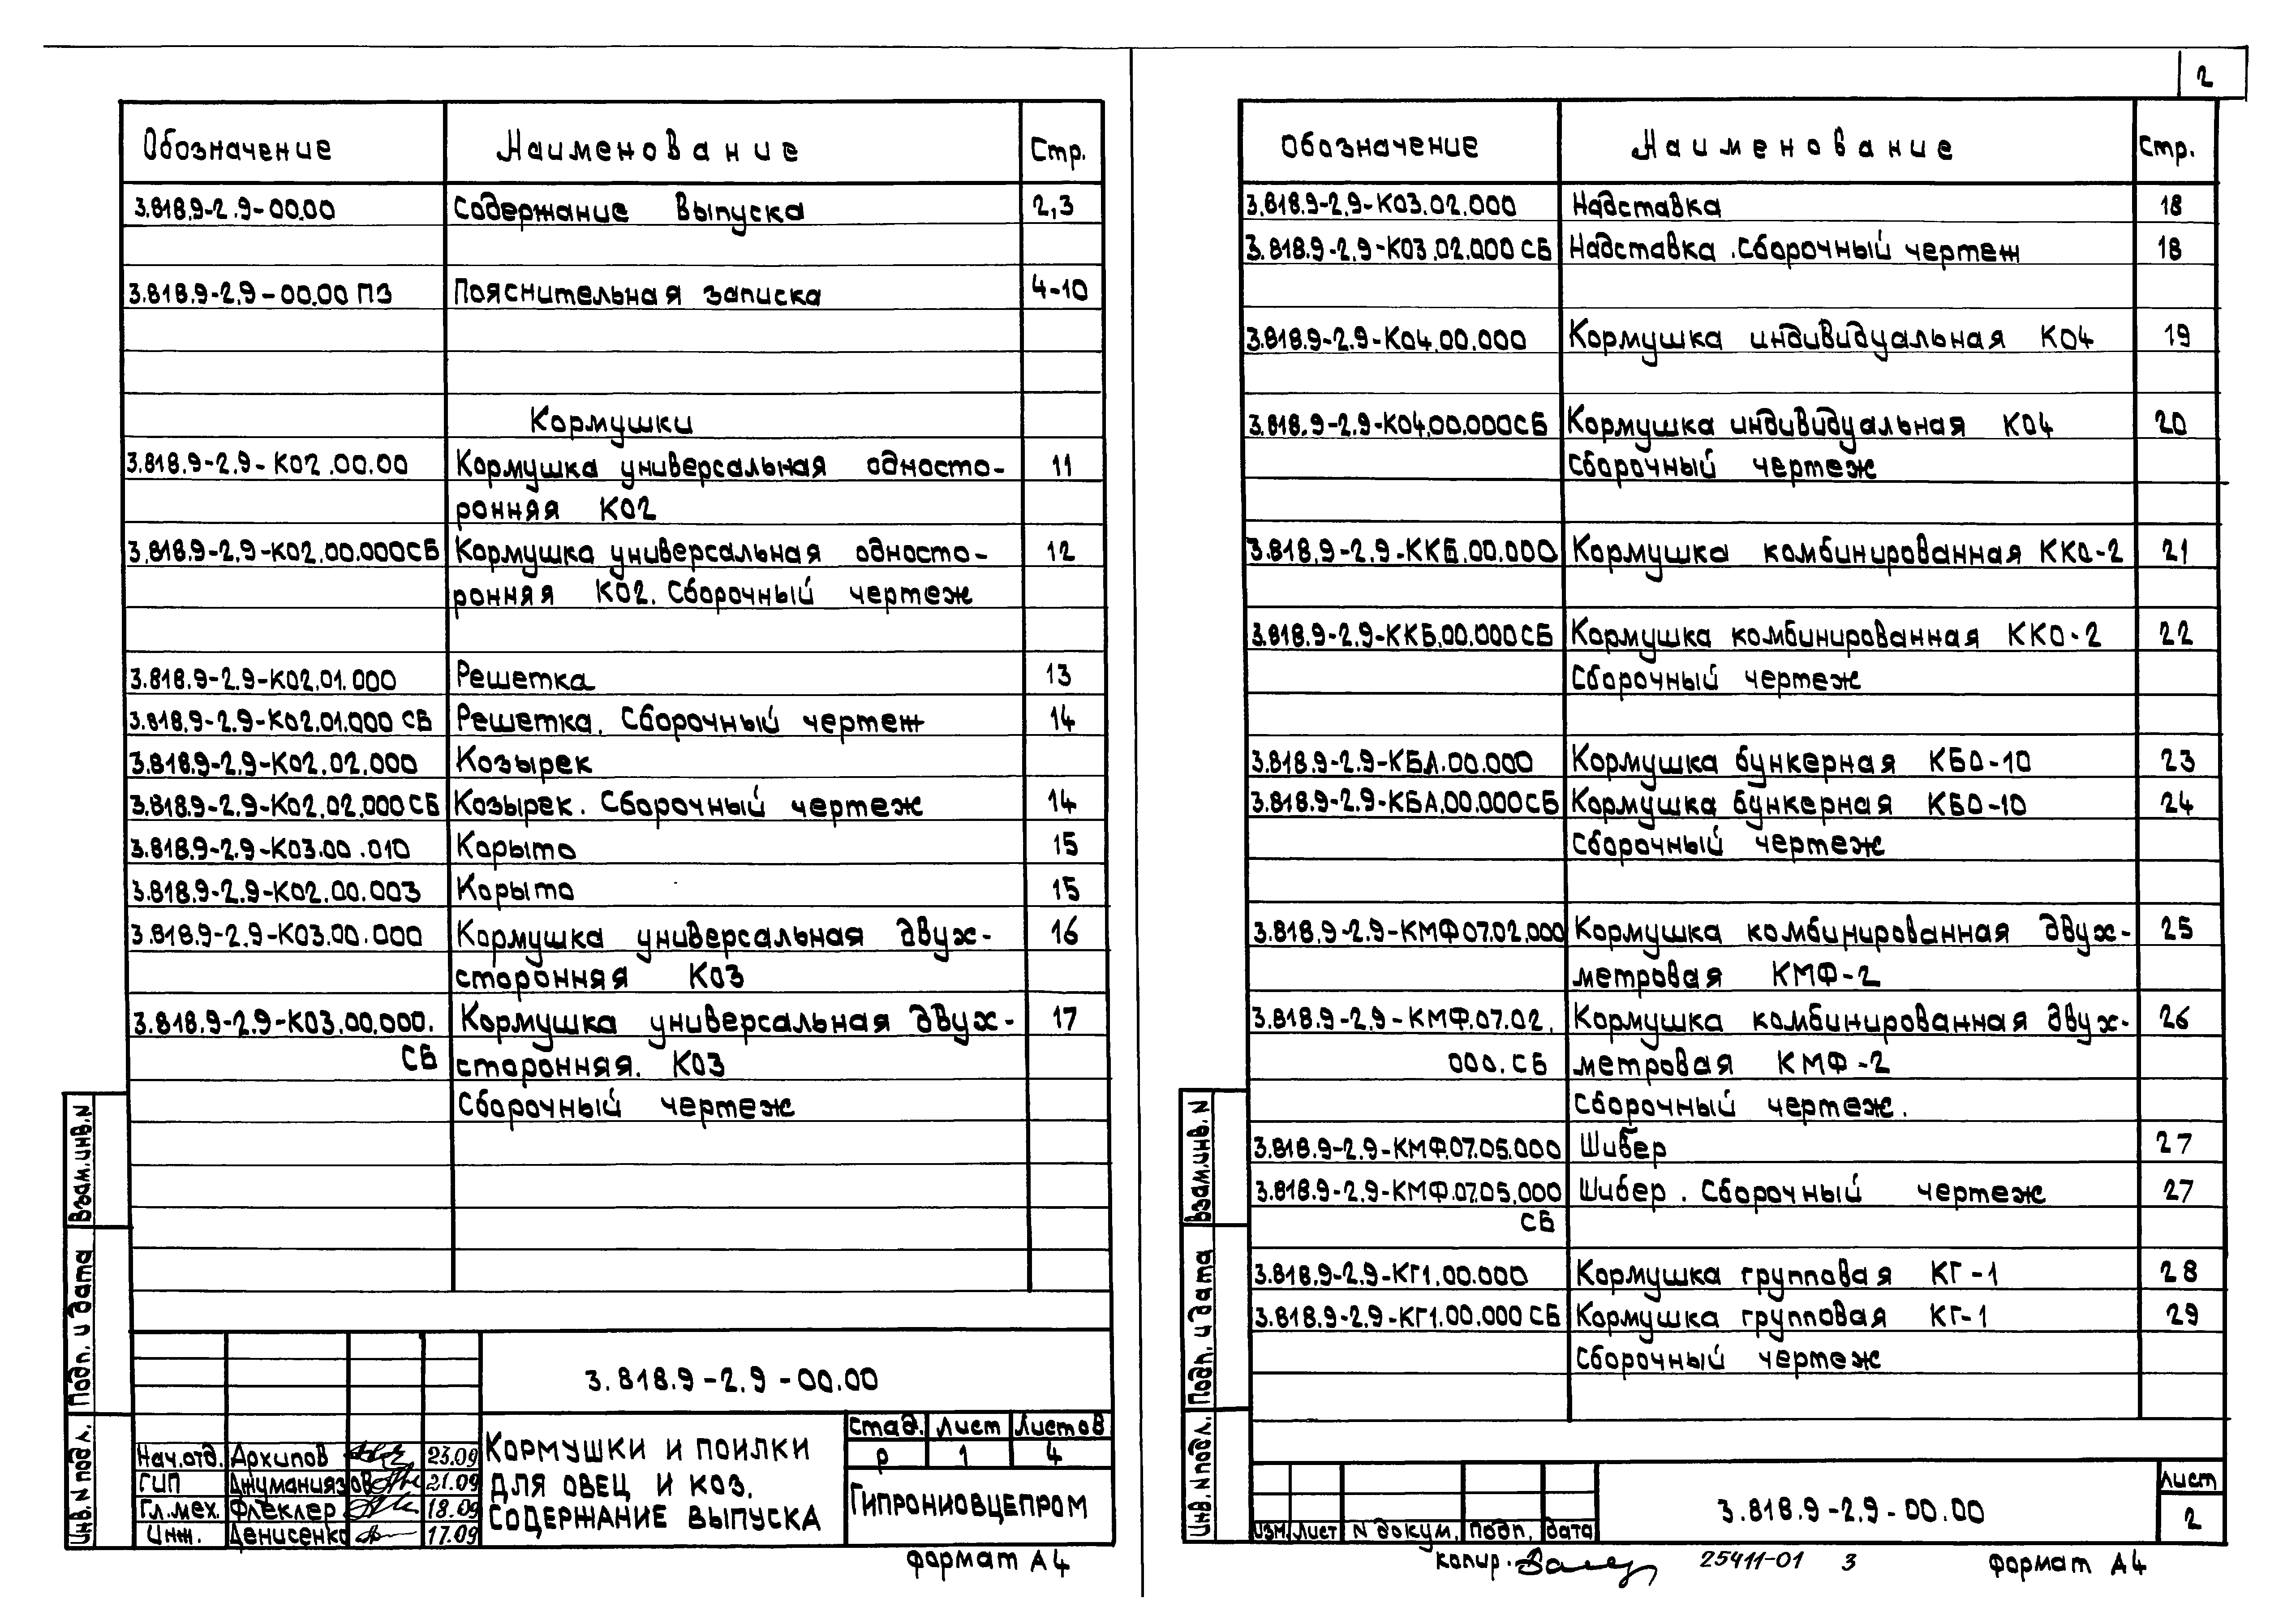 2
Обозначение Наименование Стр.
3.818.9-2.9-00.00 Содержание выпуска 2,3
3.818.9-2.9-00.00 ПЗ Пояснительная записка 4-10
Кормушки
3.818.9-2.9-К02.00.00 Кормушка универсальная односто- 11
ронняя К02
3.818.9-2.9-К02.00.000СБ Кормушка универсальная односто- 12
ронняя К02. Сборочный чертеж
3.818.9-2.9-К02.01.000 Решетка 13
3.818.9-2.9-К02.01.000 СБ Решетка. Сборочный чертеж 14
3.818.9-2.9-К02.02.000 Козырек
3.818.9-2.9-К02.02.000СБ Козырек. Сборочный чертеж 14
3.818.9-2.9-К03.00.010 Корыто 15
3.818.9-2.9-К02.00.003 Корыто 15
3.818.9-2.9-К03.00.000 Кормушка универсальная двух- 16
сторонняя К03
3.818.9-2.9-К03.00.000. Кормушка универсальная двух- 17
СБ сторонняя. К03
Сборочный чертеж
Взам.инв.N
Подп. и дата
Инв.N подл.
3.818.9-2.9-00.00
Нач.отд. Архипов 23.09
ГИП Джуманиязов 21.09
Гл.мех. Флеклер 18.09
Инж. Денисенко 17.09
Кормушки и поилки
для овец и коз.
Содержание выпуска
Стад. Лист Листов
Р 1 4
Гипрониовцепром
Формат А4
Обозначение Наименование Стр.
3.818.9-2.9-К03.02.000 Надставка 18
3.818.9-2.9-К03.02.000 СБ Надставка.Сборочный чертеж 18
3.818.9-2.9-К04.00.000 Кормушка индивидуальная К04 19
3.818.9-2.9-К04.00.000СБ Кормушка индивидуальная К04 20
Сборочный чертеж
3.818.9-2.9-ККБ.00.000 Кормушка комбинированная ККО-2 21
3.818.9-2.9-ККБ.00.000СБ Кормушка комбинированная ККО-2 22
Сборочный чертеж
3.818.9-2.9-КБА.00.000 Кормушка бункерная КБО-10 23
3.818.9-2.9-КБА.00.000СБ Кормушка бункерная КБО-10 24
Сборочный чертеж
3.818.9-2.9-КМФ07.02.000 Кормушка комбинированная двух- 25
метровая КМФ-2
3.818.9-2.9-КМФ.07.02. Кормушка комбинированная двух- 26
000.СБ метровая КМФ-2
Сборочный чертеж.
3.818.9-2.9-КМФ.07.05.000 Шибер 27
3.818.9-2.9-КМФ.07.05.000 Шибер. Сборочный чертеж 27
СБ
3.818.9-2.9-КГ1.00.000 Кормушка групповая КГ-1 28
3.818.9-2.9-КГ1.00.000 СБ Кормушка групповая КГ-1 29
Сборочный чертеж
Взам.инв.N
Подп. и дата
Инв.N подл.
Изм Лист N докум. Подп. Дата
3.818.9-2.9-00.00
Лист
2
копир. 25411-01 3 Формат А4